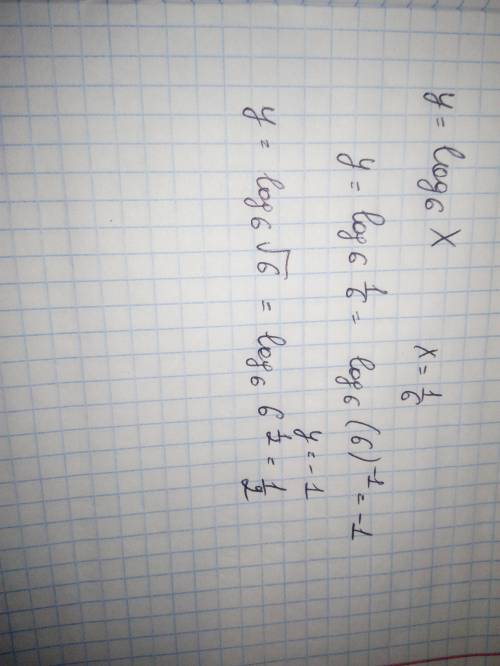 y = log₆ X    x = 1/6
y = log₆ 1/6 = log₆ (6)⁻¹ = -1
y = -1
y = log₆ √6 = log₆ 6^(1/2) = 1/2